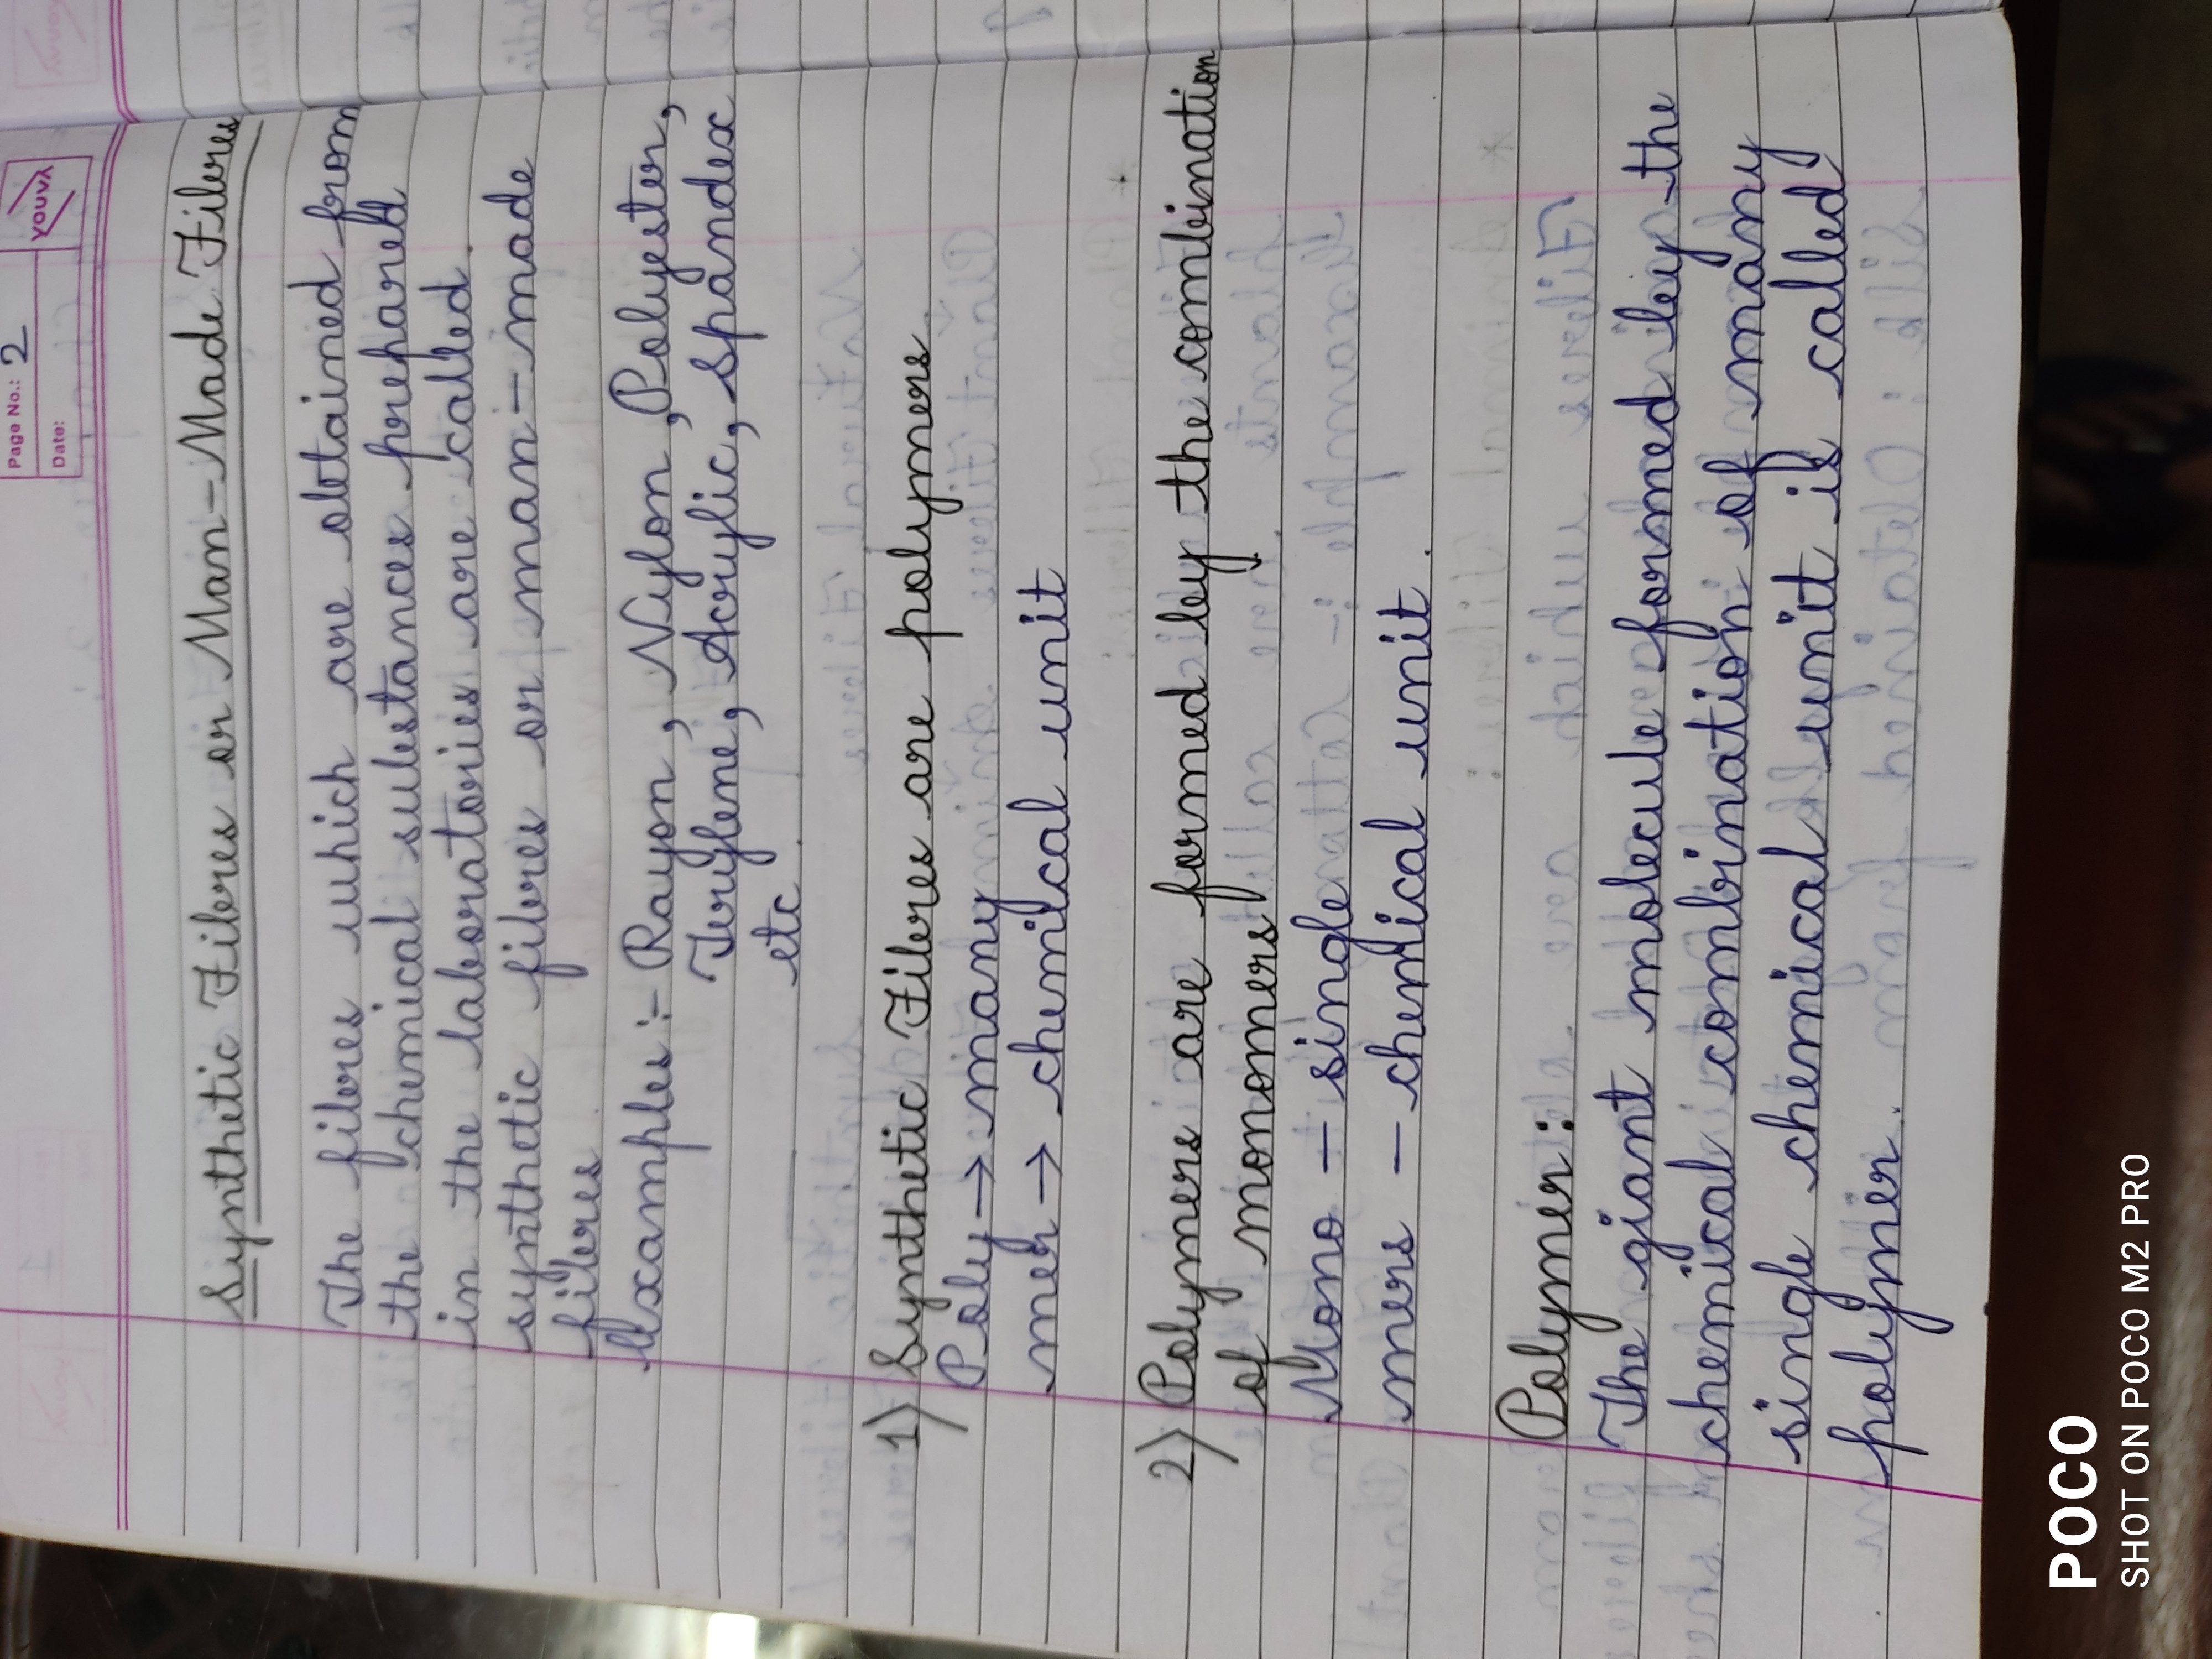 Page No.: 2
Date:
YOUVA
Synthetic Fibres or Man-Made Fibres
The fibres which are obtained from
the chemical substances prepared
in the laboratories are called
synthetic fibres or man-made
fibres.
Examples :- Rayon, Nylon, Polyester,
Terylene, Acrylic, Spandex
etc.
1) Synthetic Fibres are polymers.
Poly → many
mer → chemical unit
2) Polymers are formed by the combination
of monomers
Mono - single
mers - chemical unit.
Polymer:
The giant molecule formed by the
chemical combination of many
single chemical unit is called
polymer.
POCO
SHOT ON POCO M2 PRO